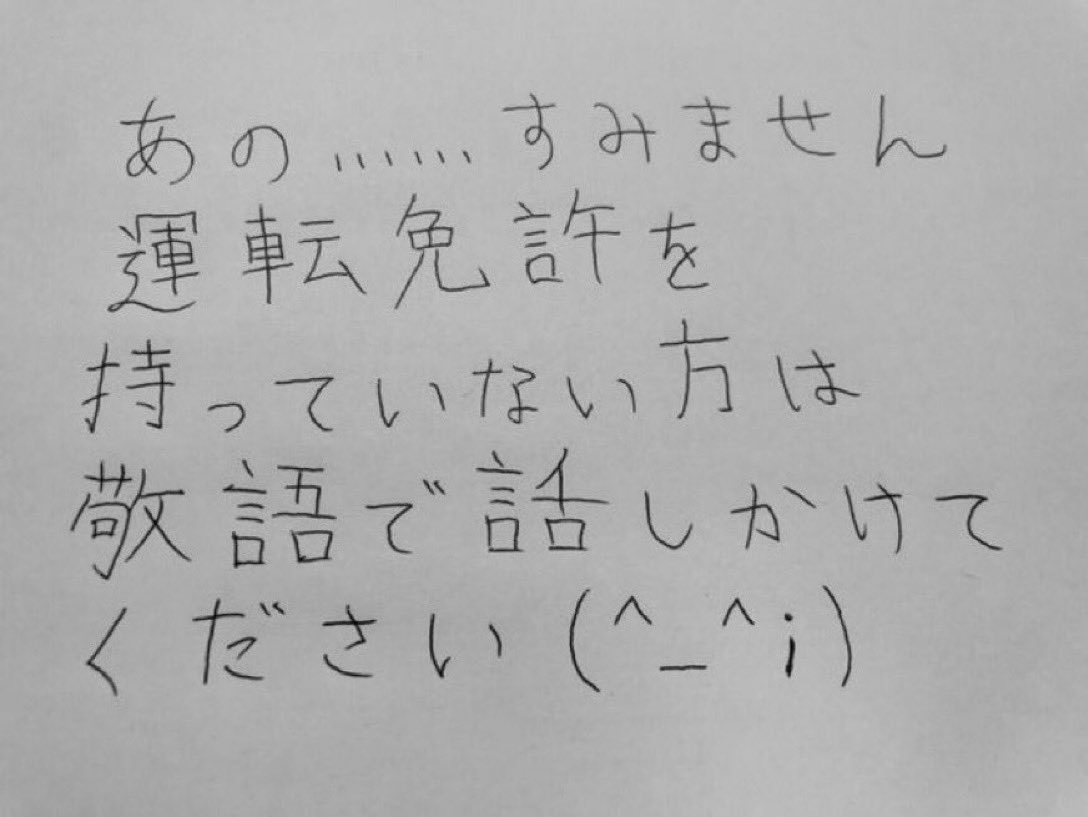 あの……すみません
運転免許を
持っていない方は
敬語で話しかけて
ください(^_^;)